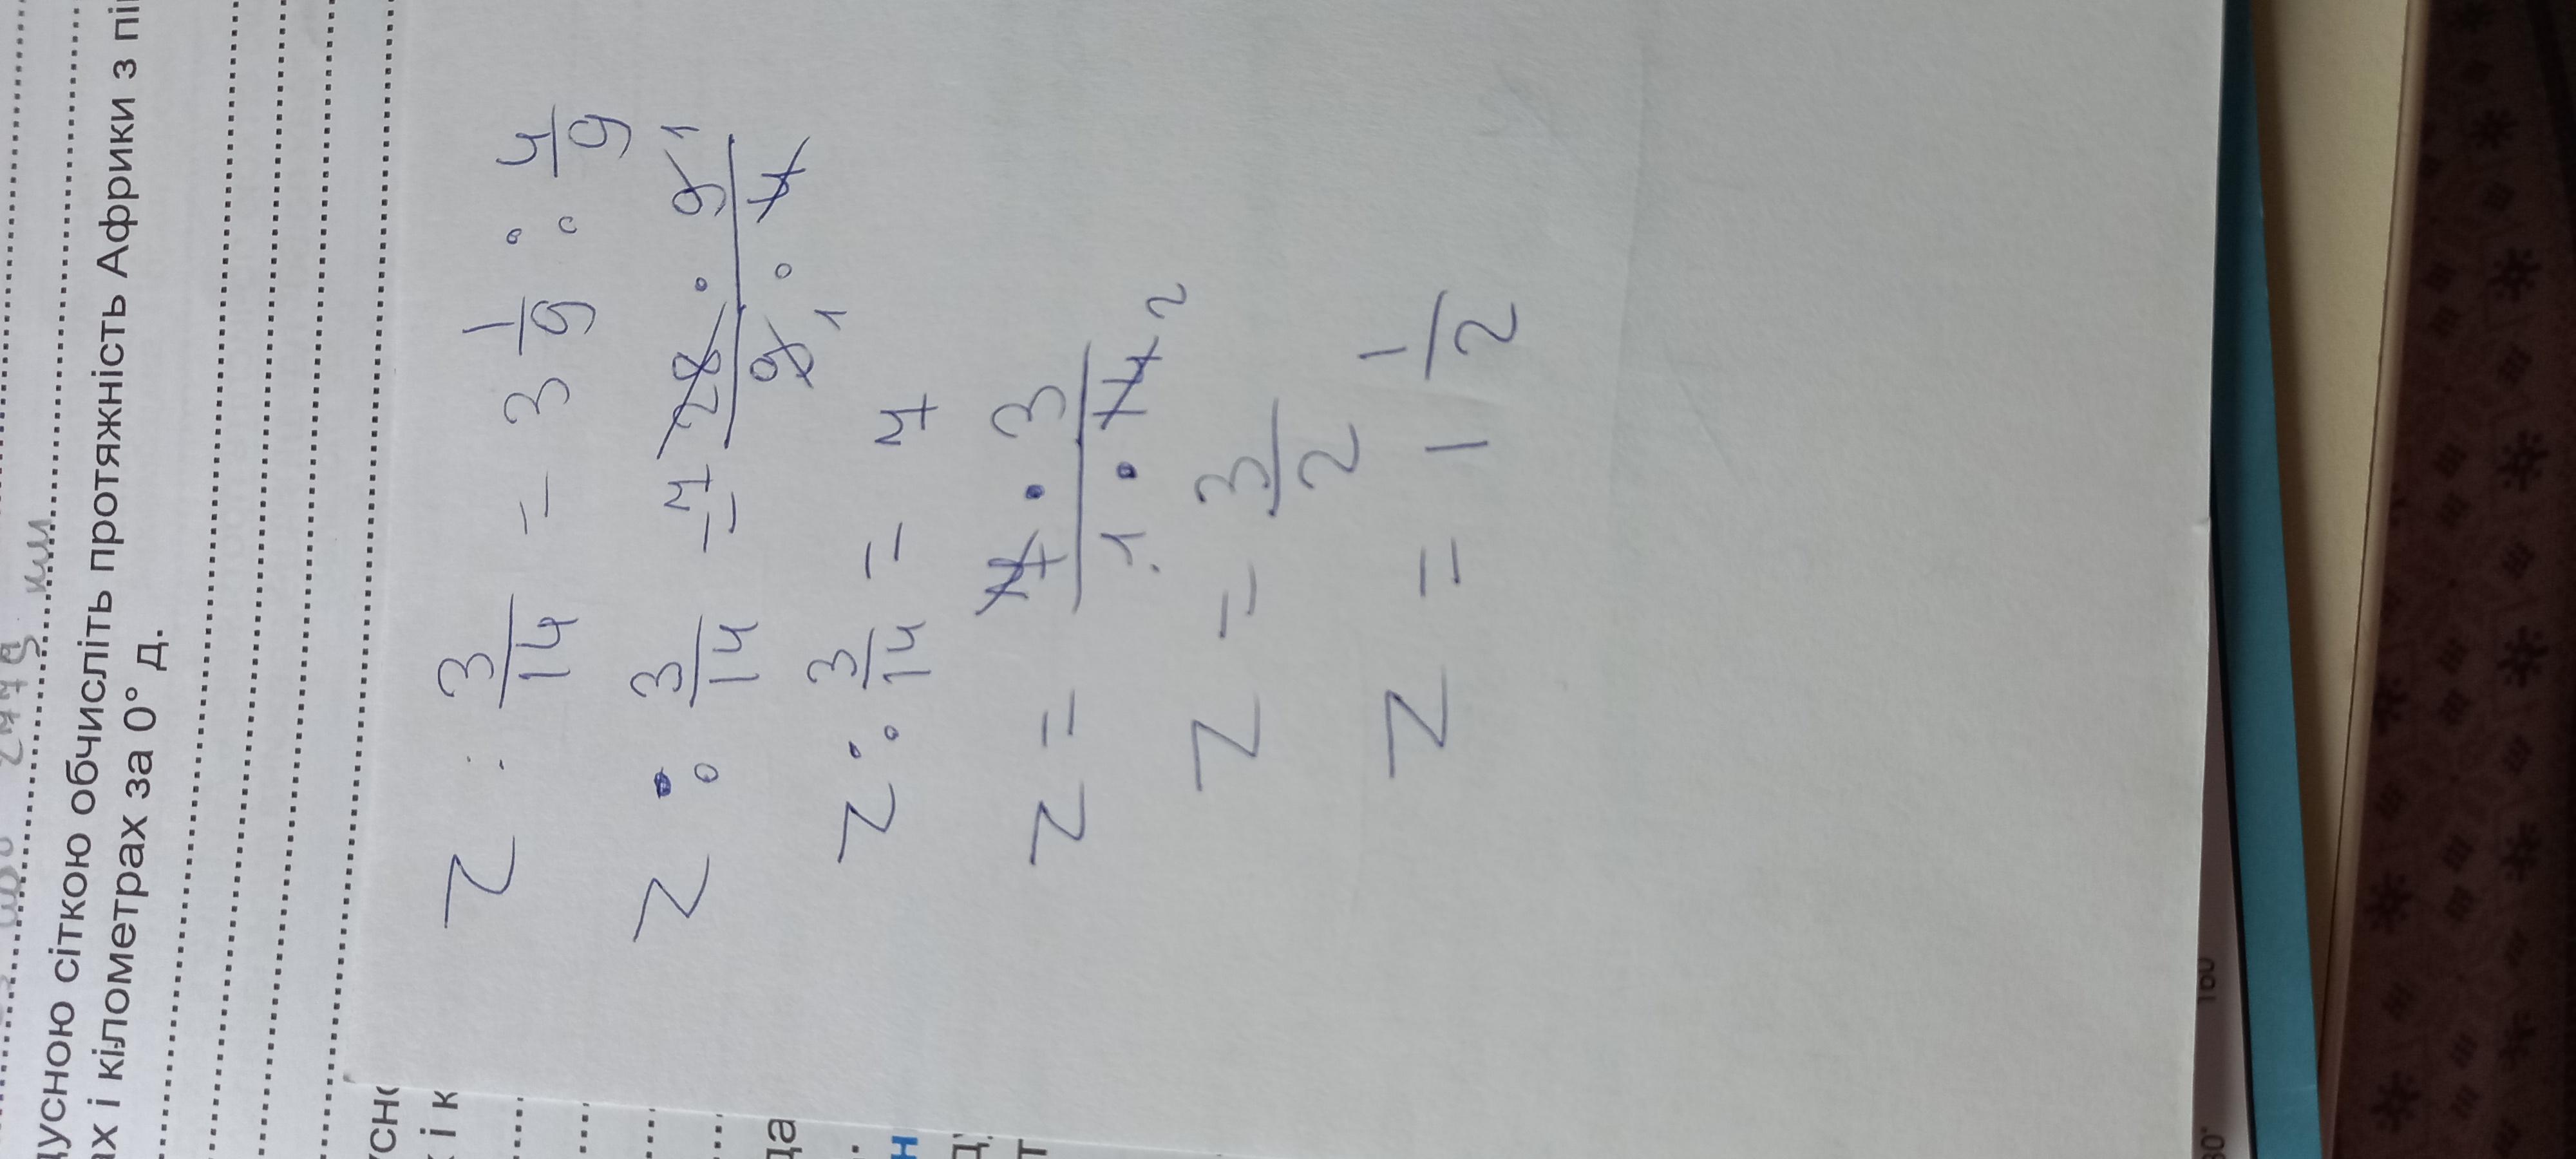 дусною сіткою обчисліть протяжність Африки з пі
ах і кілометрах за 0° д.
z : 3/14 = 3 1/9 : 4/9
z : 3/14 = 7 28 · 9 1 / 9 1 · 4
z : 3/14 = 7
z = 7 · 3 / 1 · 14 2
z = 3/2
z = 1 1/2
усно
х і к
да
н
т
160
80°